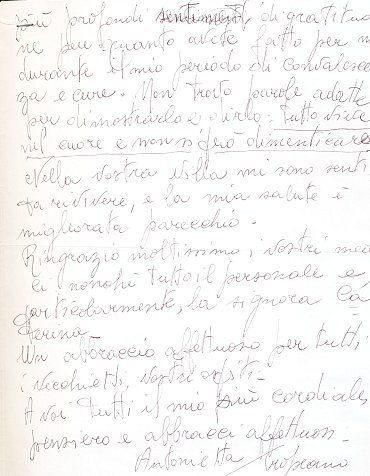 più profondi sentimenti di gratitu
ne per quanto avete fatto per m
durante il mio periodo di convalesce
za e cure. Non trovo parole adatte
per dimostrarlo e dirlo. tutto vive
nel cuore e non si può dimenticare
Nella vostra villa mi sono senti
ta rivivere, e la mia salute è
migliorata parecchio.
Ringrazio moltissimo, i vostri med
ci nonché tutto il personale e
particolarmente, la signora Ca
terina
Un abbraccio affettuoso per tutti
i vecchietti, vostri ospiti-
A voi tutti il mio più cordiale
pensiero e abbracci affettuosi-
Antonietta